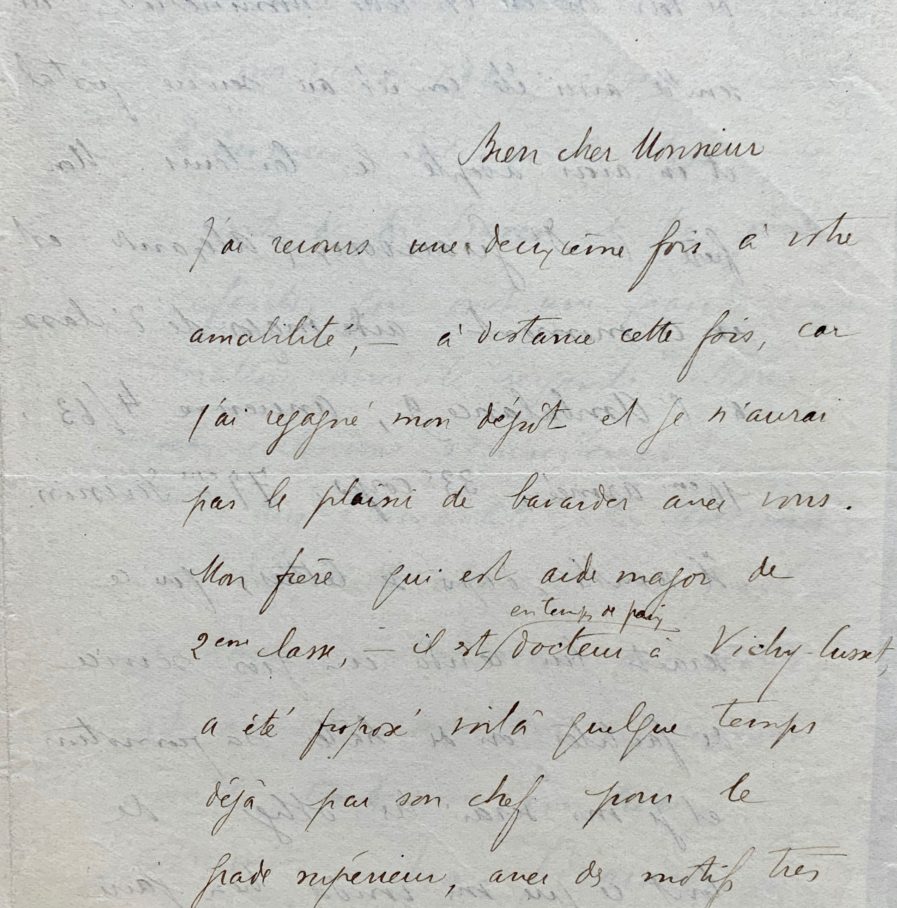 Bien cher Monsieur
J'ai recours une deuxième fois à votre
amabilité, — à distance cette fois, car
j'ai regagné mon dépôt et je n'aurai
pas le plaisir de bavarder avec vous.
Mon frère qui est aide major de
en temps de paix
2eme classe, — il est docteur à Vichy-Cusset,
a été proposé voilà quelque temps
déjà par son chef pour le
grade supérieur, avec des motifs très